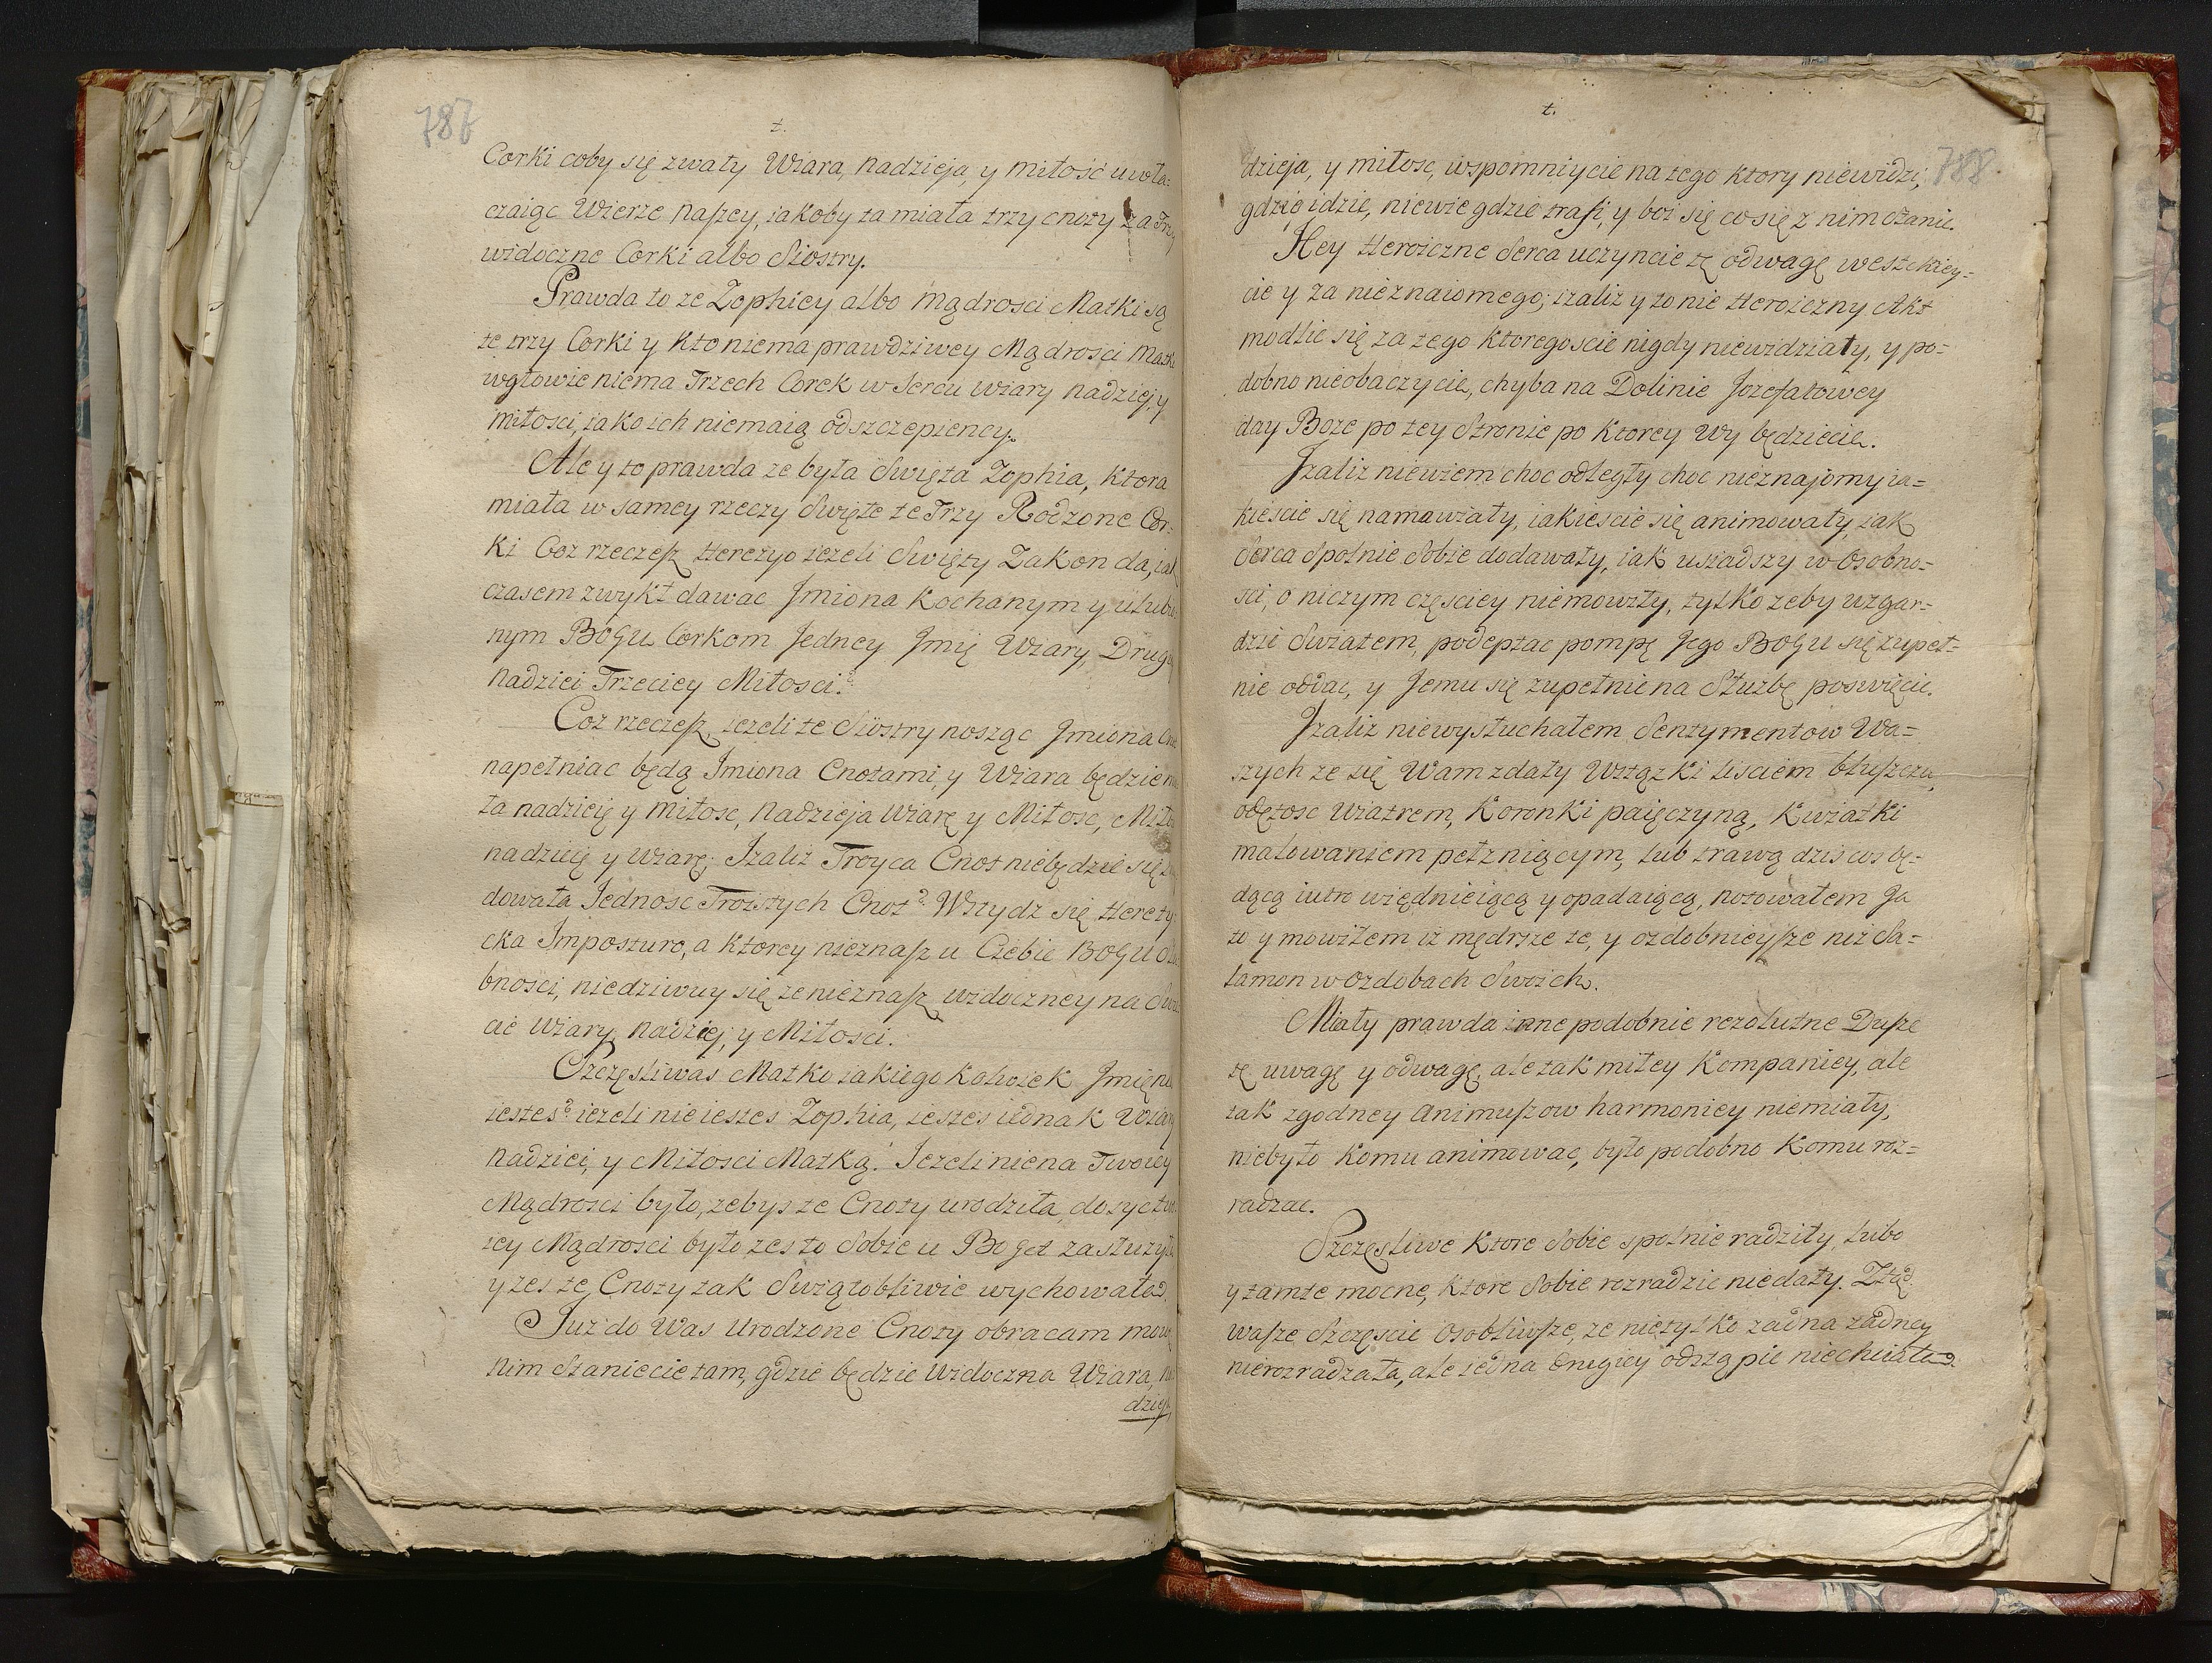 787
t.
Corki coby się zwały Wiara, nadzieja, y miłość uwła-
czaiąc Wierze naszey, iakoby ta miała trzy cnoty za
widoczne Corki albo Siostry.
Prawda to ze Zophiey albo mądrosci Matki są
te trzy Corki y kto niema prawdziwey Mądrosci Matki
wgłowie niema Trzech Corek w Sercu wiary nadziej, y
miłosci, iako ich niemaią odszczepiency.
Ale y to prawda ze była Swięta Zophia, ktora
miała w samey rzeczy Swięte te Trzy Rodzone Cor-
ki Coz rzeczesz Herezyo iezeli Swięty Zakon da, iak
czasem zwykł dawac Jmiona kochanym y ulubio
nym BOGU Corkom Jedney Jmię Wiary, Drugi
nadziei Trzeciey Miłosci?
Coz rzeczesz, iezeli te Siostry nosząc Jmiona
napełniac będą Jmiona Cnotami, y Wiara będzie
ta nadzieię y miłosc, nadzieja Wiarę y Miłosc, Miło
nadzieię y wiarę; Jzaliz Troyca Cnot niebędzie się
dowała Jednosc Troistych Cnot? Wstydz się Herety
cka Jmposturo, a ktorey nieznasz u Ciebie BOGU
bnosci, niedziwuy się ze nieznasz widoczney na Swie
cie Wiary, nadziej, y Miłosci.
Szczęsliwas Matko iakiegokolwiek Jmięnia
iestes? iezeli nieiestes Zophia, iestes iednak Wiary
nadziei, y Miłosci Matką. Jezeli niena Twoiey
Mądrosci było, zebys te Cnoty urodziła, dosyc
iey Mądrosci było zes to Sobie u Boga zasłuzyła
y zes te Cnoty tak Swiątobliwie wychowała.
Juz do Was Urodzone Cnoty obracam mowę
nim Staniecie tam, gdzie będzie Widoczna Wiara, na
dzieja,
788
t.
dzieja, y miłosc, wspomniycie na tego ktory niewidzi,
gdzie idzie, niewie gdzie trafi, y boi się co się z nim stanie.
Hey Heroiczne Serca uczyncie tę odwagę westchniey-
cie y za nieznaiomego; izaliz y to nie Heroiczny Akt
modlic się za tego ktoregoscie nigdy niewidziały, y po-
dobno nieobaczycie, chyba na Dolinie Jozefatowey
day Boze po tey Stronie po ktorey Wy będziecie.
Jzaliz niewiem choc odległy choc nieznajomy ia-
kiescie się namawiały, iakiescie się animowały, iak
Serca Spolnie Sobie dodawały, iak usiadszy w Osobno-
sci, o niczym częsciey niemowiły, tylko zeby wzgar-
dzic Swiatem, podeptac pompę Jego BOGU się zupeł-
nie oddac, y Jemu się zupełnie na Słuzbę poswięcic.
Jzaliz niewysłuchałem Sentymentow Wa-
szych ze się Wam zdały Wstązki lisciem bluszczu,
odętosc wiatrem, Koronki paięczyną, Kwiatki
malowaniem pełznięcym, lub trawą dzis cos bę-
dącą iutro więdnieiącą y opadaiącą, notowałem Ja
to y mowiłem iz mędrsze te, y ozdobnieysze niz Sa-
lamon w Ozdobach Swoich.
Miały prawda inne podobnie rezolutne Dusze
tę uwagę y odwagę, ale tak miłey Kompaniey, ale
tak zgodney animuszow harmoniey niemiały,
niebyło komu animowac, było podobno Komu roz-
radzac.
Szczęsliwe ktore Sobie spolnie radziły, lubo
y tamte mocne, ktore Sobie rozradzic niedały. Ztąd
wasze Szczęscie Osobliwsze, ze nietylko zadna zadney
nierozradzała, ale iedna drugiey odstąpic niechciała.